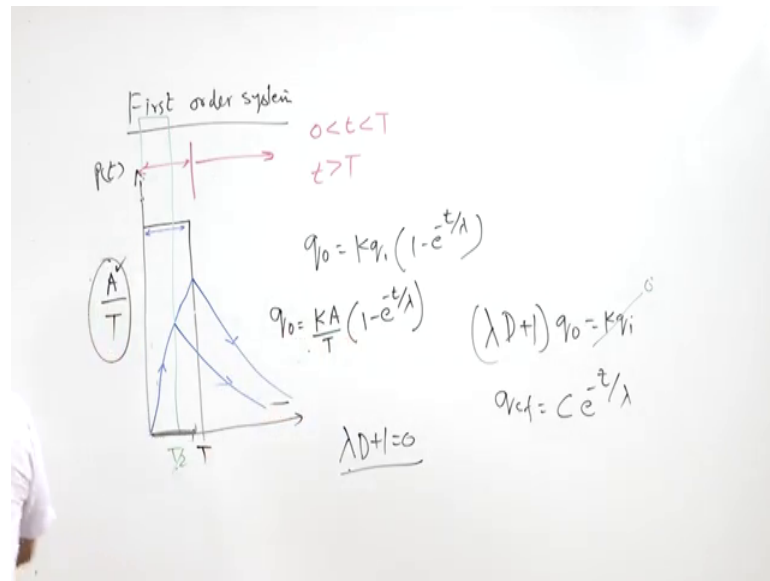 First order system
0<t<T
t>T
P(t)
q₀ = Kqᵢ (1-e^(-t/λ))
A/T
q₀ = KA/T (1-e^(-t/λ))
(λD+1) q₀ = Kqᵢ 0
q_cf = C e^(-t/λ)
λD+1=0
T/2 T